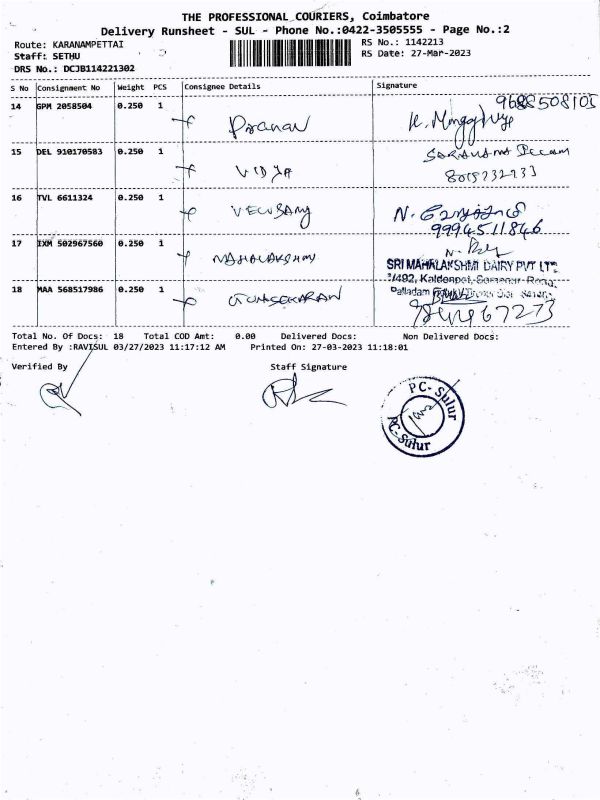 THE PROFESSIONAL COURIERS, Coimbatore
Delivery Runsheet - SUL - Phone No.:0422-3505555 - Page No.:2
Route: KARANAMPETTAI
RS No.: 1142213
Staff: SETHU
RS Date: 27-Mar-2023
DRS No.: DCJB114221302
S No Consignment No Weight PCS Consignee Details Signature
14 GPM 2058504 0.250 1 Pranav 9688508105
15 DEL 910170583 0.250 1 VIDYA
16 TVL 6611324 0.250 1 VELUSAMY
9994511846
17 IXM 502967560 0.250 1 MAHALAKSHMY
SRI MAHALAKSHMI DAIRY PVT LTD
18 MAA 568517986 0.250 1 GUNASEKARAN
Palladam
Total No. Of Docs: 18 Total COD Amt: 0.00 Delivered Docs: Non Delivered Docs:
Entered By :RAVISUL 03/27/2023 11:17:12 AM Printed On: 27-03-2023 11:18:01
Verified By Staff Signature
PC- Sulur
PC- Sulur